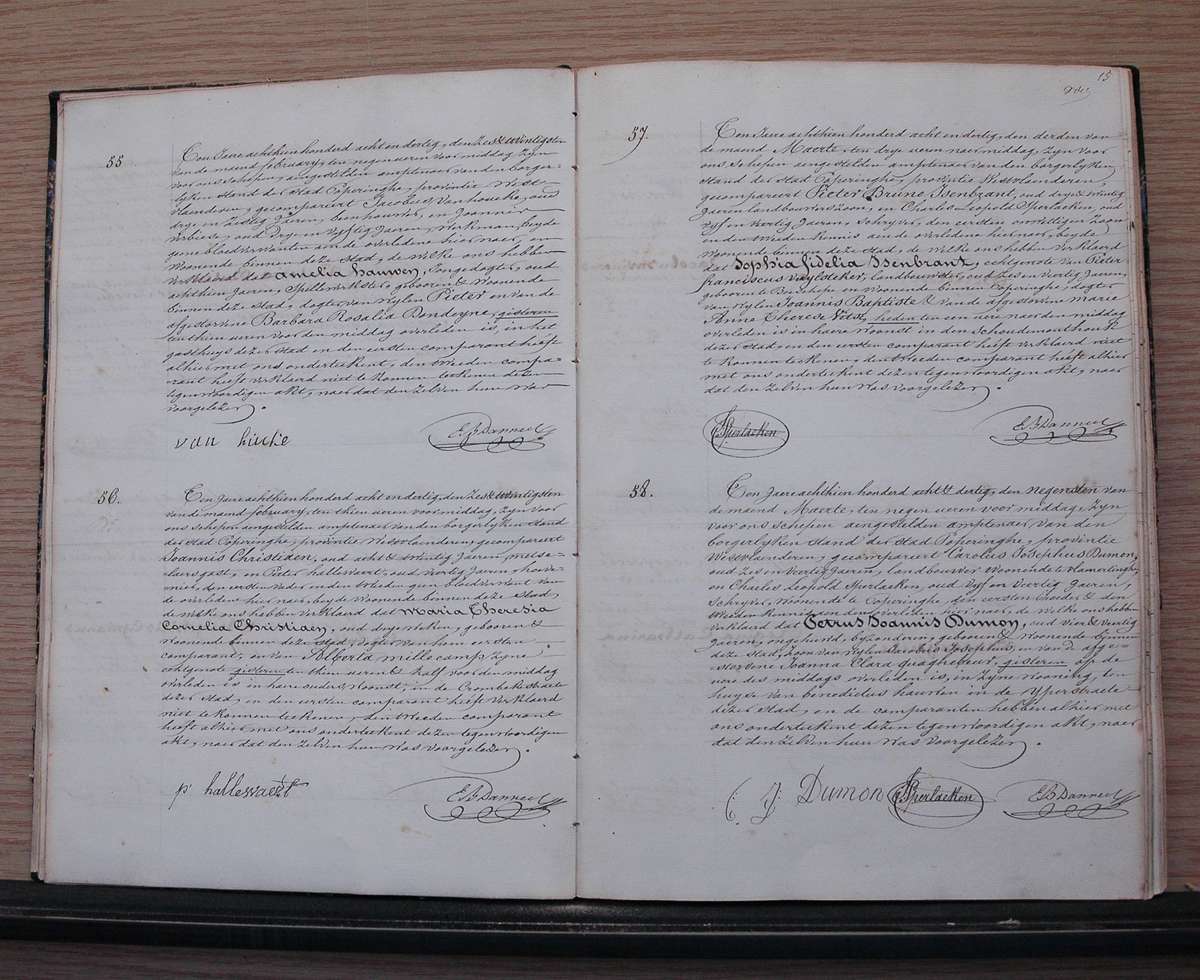 55
Ten Jaere achthien honderd acht en dertig, den Zes & twintigsten
van de maand february, ten negen ueren voor middag, Zyn
voor ons schepen aengestelden amptenaer van den borger-
lyken stand der stad Poperinghe, provintie West-
vlaenderen, gecompareert Jacobus Vanhoucke, oud
dry en Zestig Jaeren, beenhouwer, en Joannes
oud Dry en Vyftig Jaeren, Werkman, beyde
geene bloedverwanten aen de overledene hier naer, en
Woonende binnen deze Stad, de Welke ons hebben
verklaerd dat amelia hauwen, Jongedogter, oud
achthien Jaeren, Spellewerkster, gebooren & Woonende
binnen deze Stad, dogter van Wylen Pieter en van de
afgestorvene Barbara Rosalia Dondeyne, gisteren
ten thien ueren voor den middag overleden is, in het
gasthuys dezer Stad en den eersten comparant heeft
alhier met ons onderteekent, den tweeden compa-
rant heeft verklaerd niet te konnen teekenen dezen
tegenwoordigen akt, naer dat den Zelven hun was
voorgelezen.
van hucke
E. B. Danneel
56.
Ten Jaere achthien honderd acht en dertig, den Zes & twintigsten
van de maand february, ten thien ueren voor middag, Zyn voor
ons schepen aengestelden amptenaer van den borgerlyken stand
der stad Poperinghe, provintie Westvlaenderen, gecompareert
Joannis Christiaen, oud acht & twintig Jaeren, metse-
laersgast, en Pieter hallewaert, oud veertig Jaeren, hove-
nier, den eersten vader en den tweeden geen bloedverwant van
de overledene hier naer, beyde Woonende binnen deze Stad,
de welke ons hebben verklaerd dat Maria Theresia
Cornelia Christiaen, oud dry weken, gebooren &
Woonende binnen deze Stad, dogter van hem eersten
comparant, en van Alberta millecamp, Zyne
echtgenote gisteren ten thien ueren & half voor den middag
overleden is in haere ouders woonst, in de Crombekestraete
dezer Stad, en den eersten comparant heeft verklaerd
niet te konnen teekenen, den tweeden comparant
heeft alhier met ons onderteekent dezen tegenwoordigen
akt, naer dat den Zelven hun was voorgelezen.
p' hallewaert
E. B. Danneel
15
57.
Ten Jaere achthien honderd acht en dertig, den derden van
de maand Maerte, ten drye ueren naer middag, Zyn voor
ons schepen aengestelden amptenaer van den borgerlyken
stand der stad Poperinghe, provintie Westvlaenderen,
gecompareert Pieter Bruno Isenbrant, oud dry & twintig
Jaeren landbouwers Zoon, en Charles Leopold D'Sperlaeken, oud
vyf en veertig Jaeren, Schryver, den eersten Zoon
en den tweeden kennis aen de overledene hier naer, beyde
Woonende binnen deze Stad, de welke ons hebben verklaerd
dat Sophia fidelia Isenbrant, echtgenote van Pieter
franciscus landbouwer, oud Zes en veertig Jaeren,
gebooren te en Woonende binnen Poperinghe, dogter
van Wylen Joannis Baptiste & van de afgestorvene marie
Anne Therese heden ten een uere naer den middag
overleden is in haere woonst in den Schoudemonthouk
dezer Stad en den eersten comparant heeft verklaerd niet
te konnen teekenen, den tweeden comparant heeft alhier
met ons onderteekent dezen tegenwoordigen akt, naer
dat den Zelven hun was voorgelezen.
Sperlaeken
E. B. Danneel
58.
Ten Jaere achthien honderd acht & dertig, den negensten van
de maend Maerte, ten negen ueren voor middag, Zyn
voor ons schepen aengestelden amptenaer van den
borgerlyken stand der stad Poperinghe, provintie
Westvlaenderen, gecompareert Carolus Josephus Dumon,
oud Zes en veertig Jaeren, landbouwer Woonende te Vlamertinghe,
en Charles Leopold Sperlaeken, oud vyf en veertig Jaeren,
Schryver, Woonende te Poperinghe, den eersten broeder & den
tweeden kennis aen den overleden hier naer, de welke ons hebben
verklaerd dat Petrus Joannis Dumon, oud vier & veertig
Jaeren, ongehuwd, byzonderen, gebooren & Woonende binnen
deze stad, Zoon van Wylen Jacobus Josephus, en van de afge-
storvene Joanna Clara quaghebeur, gisteren op de
uere des middags overleden is, in Zyne wooning, ten
huyze van benedictus in de Yperstraete
dezer Stad, en de comparanten hebben alhier met
ons onderteekent dezen tegenwoordigen akt, naer
dat den Zelven hun was voorgelezen.
C. J. Dumon
Sperlaeken
E. B. Danneel